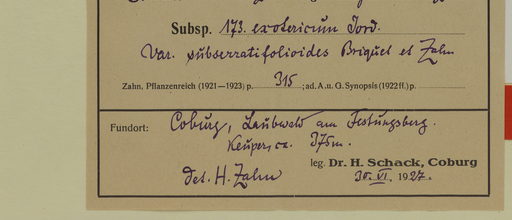 Subsp. 173. exotericum Jord.
Var. subserratifolioides Briquet et Zahn
Zahn, Pflanzenreich (1921—1923) p. 315 ; ad. A. u. G. Synopsis (1922 ff.) p.
Fundort: Coburg, Laubwald am Festungsberg.
Keuper, ca. 375m.
leg. Dr. H. Schack, Coburg
det. H. Zahn 30. VI. 1927.